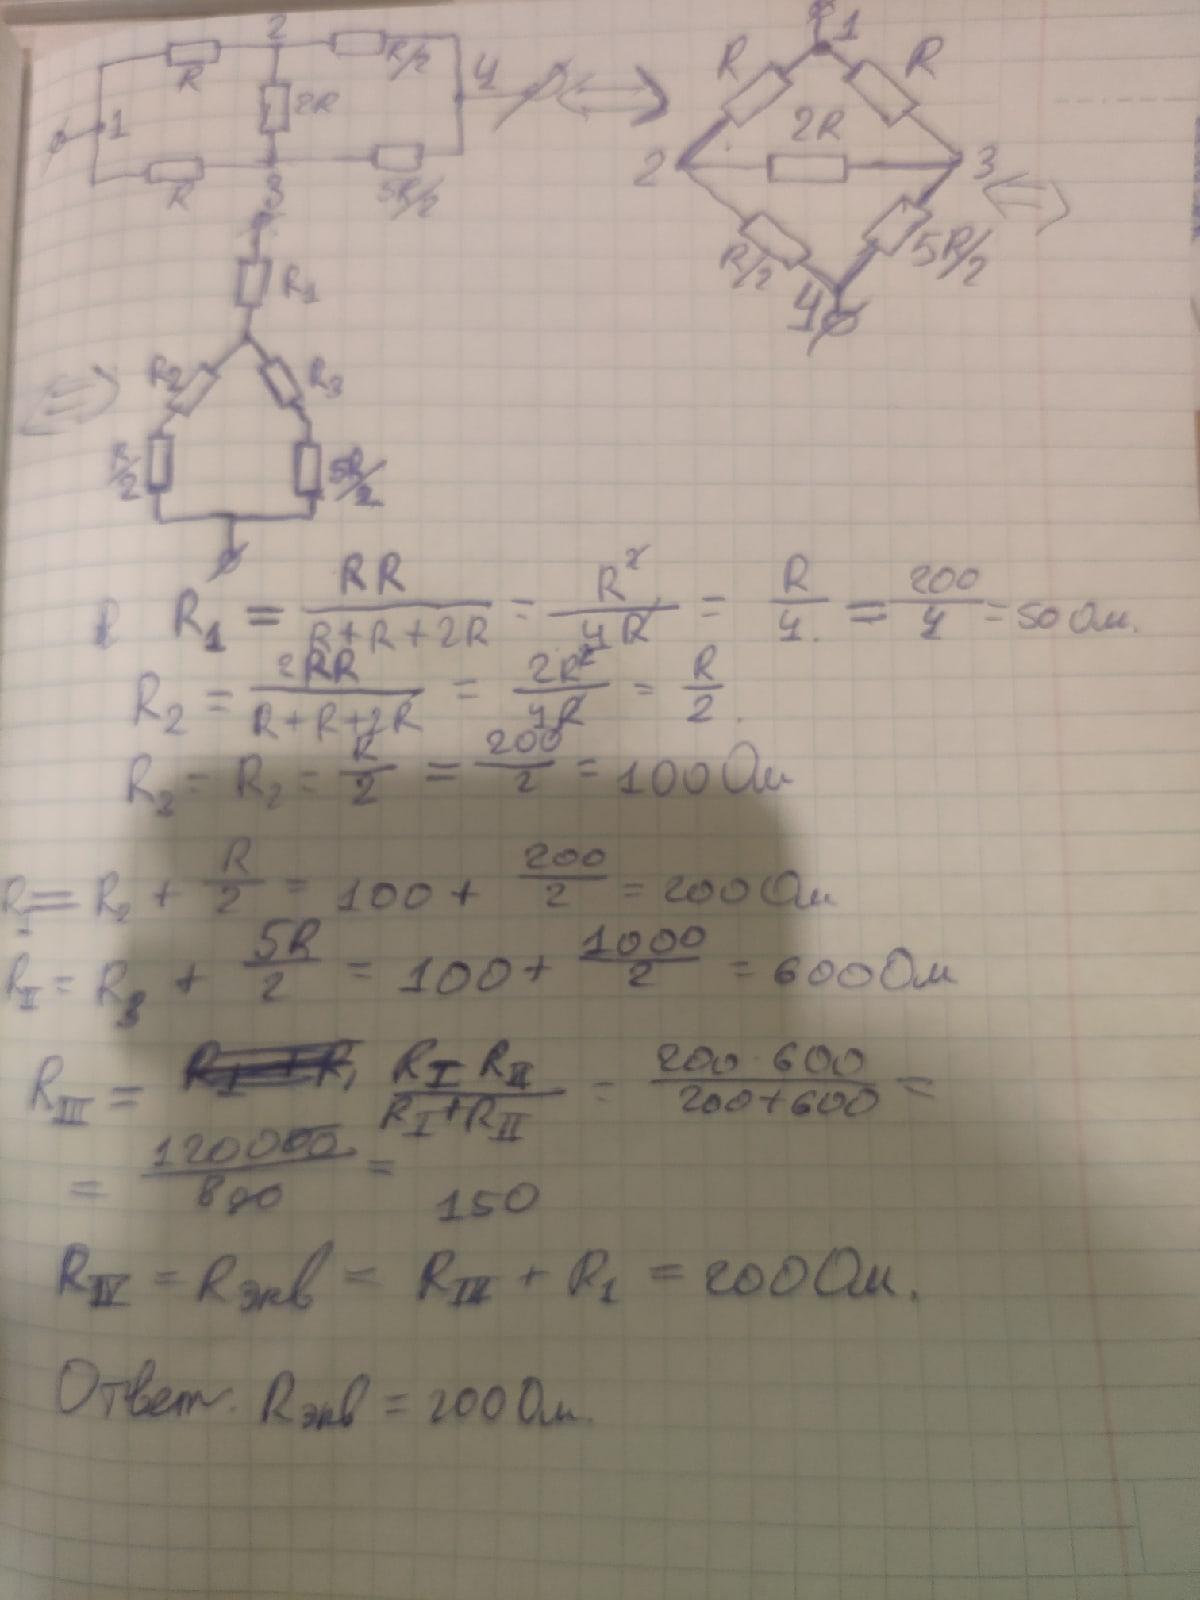 2
R
R/2
2R
4
1
R
3
5R/2
1
R
R
2R
2
3
R/2
5R/2
4
R₁
R₂
R₃
R/2
5R/2
R₁ = RR/(R+R+2R) = R²/4R = R/4 = 200/4 = 50 Ом.
R₂ = 2RR/(R+R+2R) = 2R²/4R = R/2.
R₃ = R₂ = R/2 = 200/2 = 100 Ом
R_I = R₂ + R/2 = 100 + 200/2 = 200 Ом
R_II = R₃ + 5R/2 = 100 + 1000/2 = 600 Ом
R_III = R_I R_II/(R_I+R_II) = 200·600/(200+600) =
= 120000/800 = 150
R_IV = Rэкв = R_III + R₁ = 200 Ом.
Ответ. Rэкв = 200 Ом.